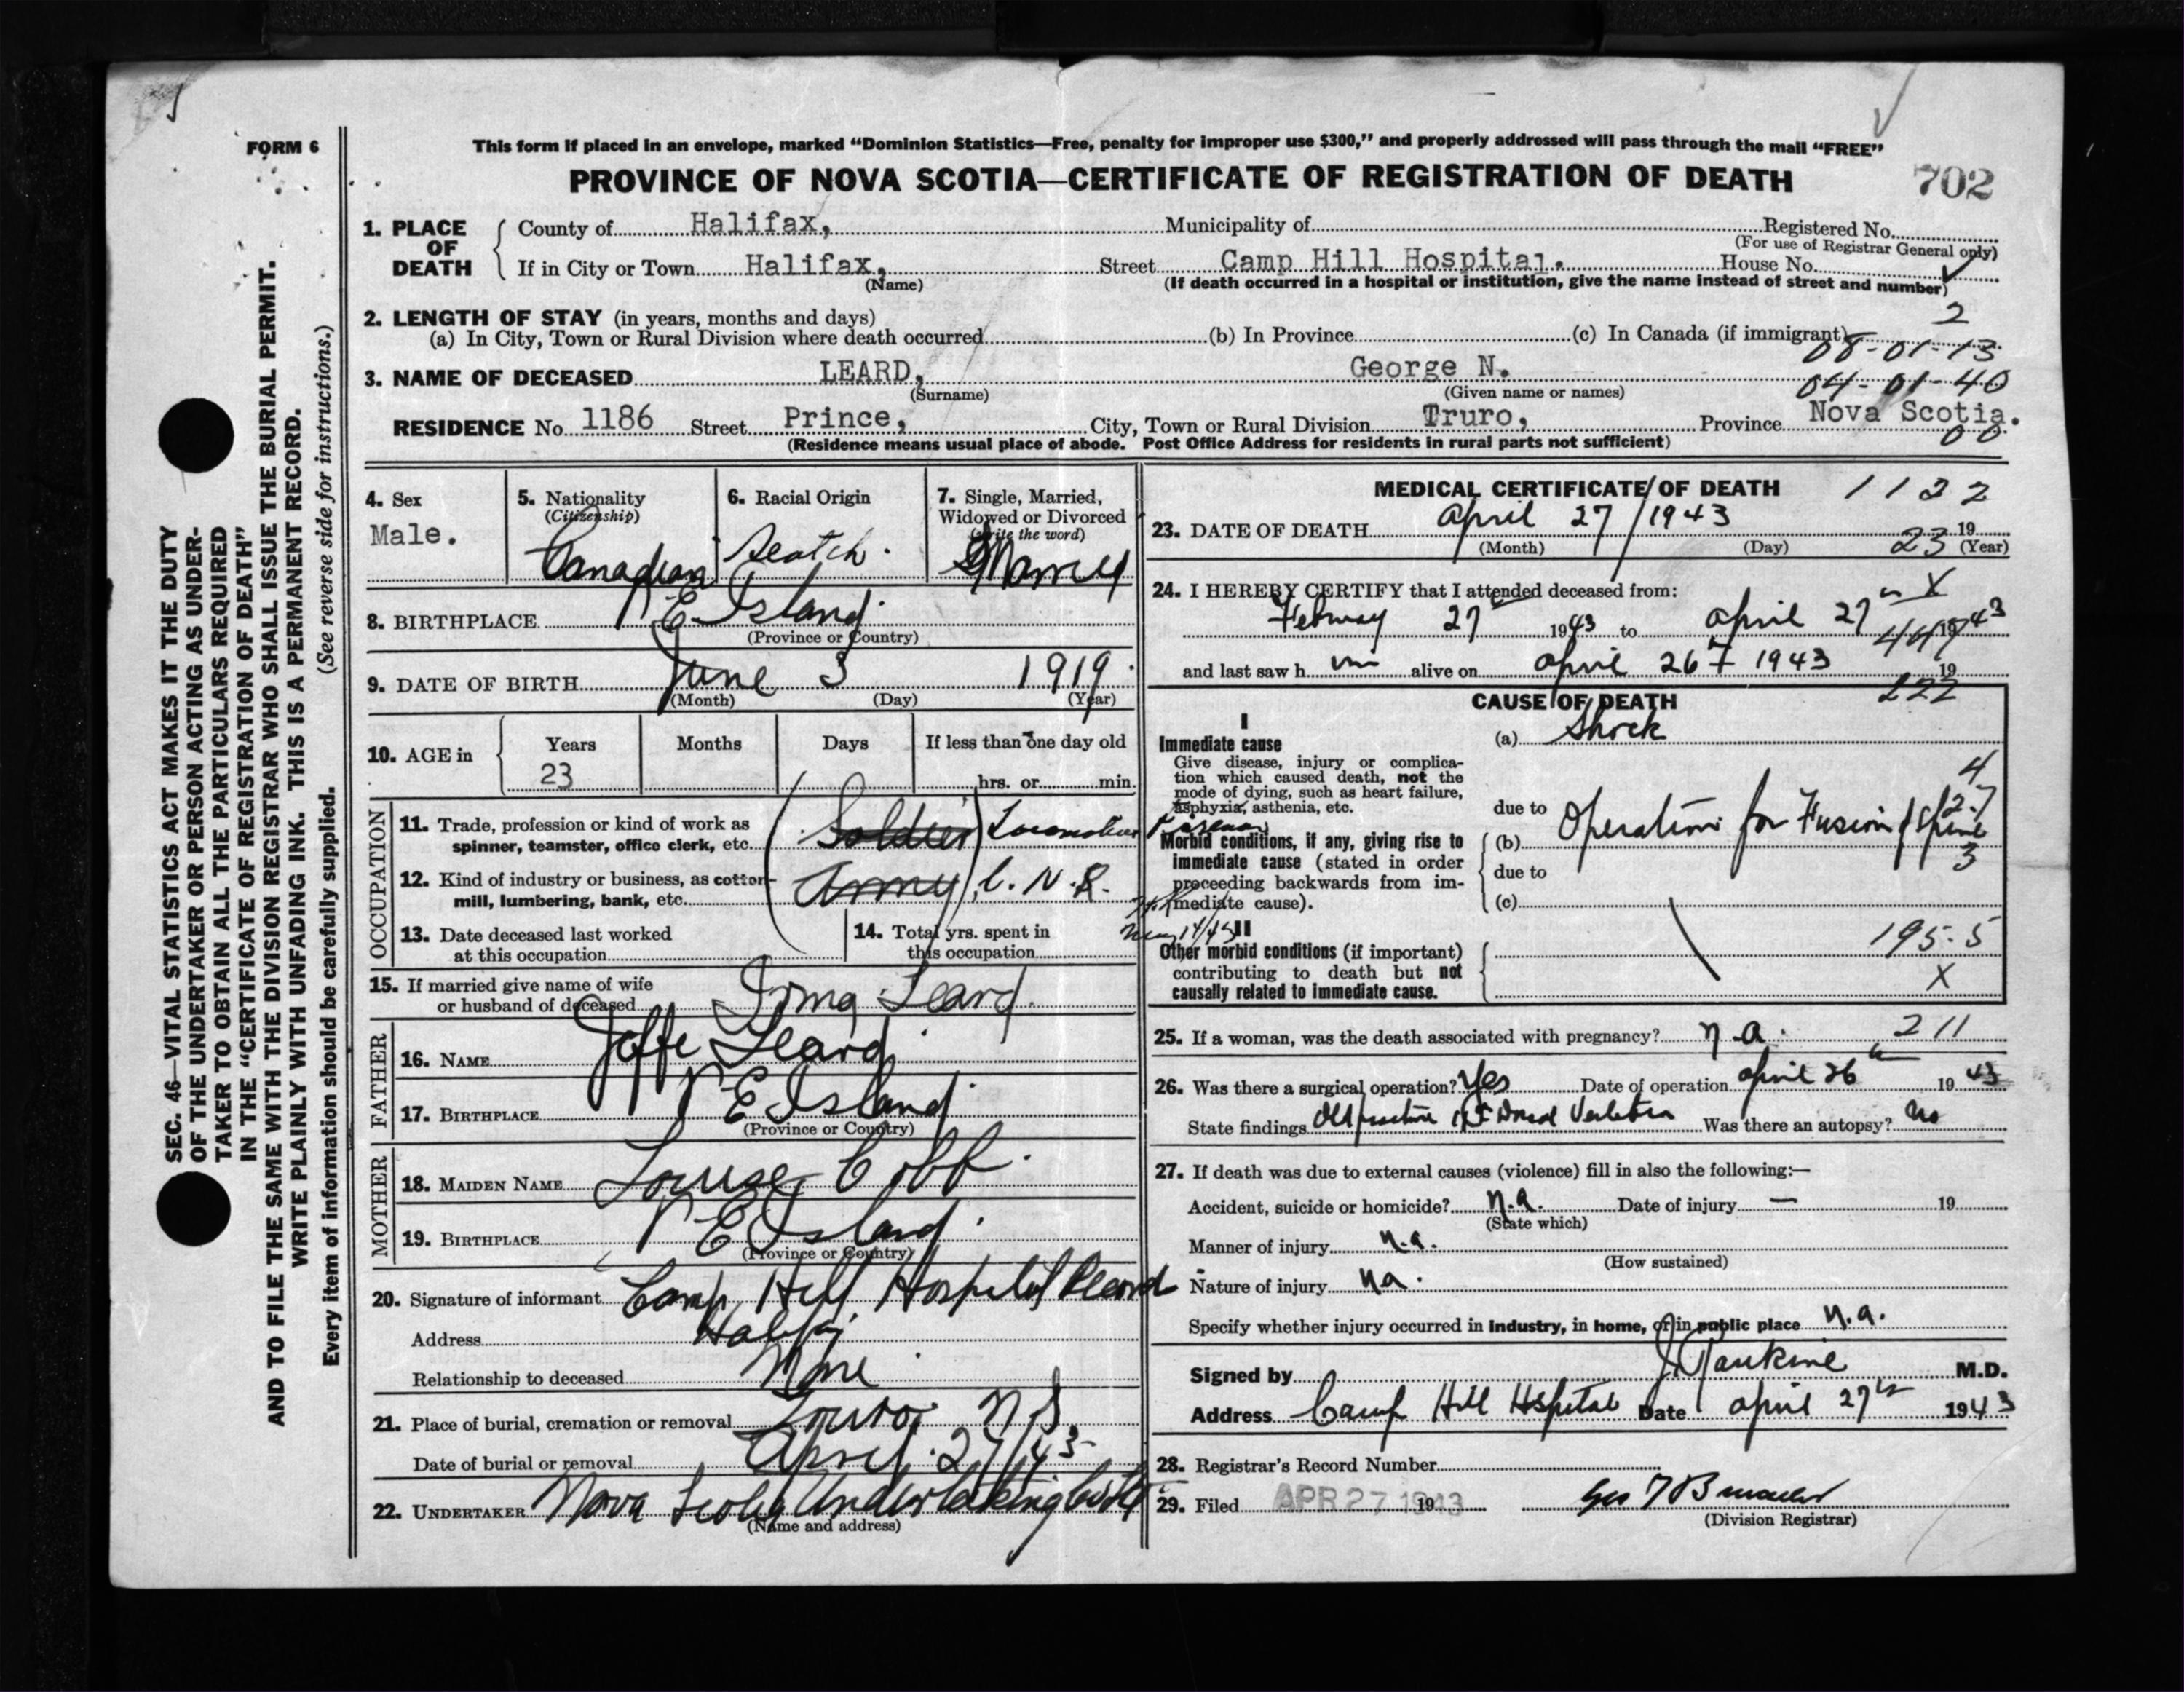 FORM 6
This form if placed in an envelope, marked “Dominion Statistics—Free, penalty for improper use $300,” and properly addressed will pass through the mail “FREE”
PROVINCE OF NOVA SCOTIA—CERTIFICATE OF REGISTRATION OF DEATH
702
1. PLACE OF DEATH
County of Halifax, Municipality of Registered No.
(For use of Registrar General only)
If in City or Town Halifax, Street Camp Hill Hospital. House No.
(Name) (If death occurred in a hospital or institution, give the name instead of street and number)
2. LENGTH OF STAY (in years, months and days) 2
(a) In City, Town or Rural Division where death occurred (b) In Province (c) In Canada (if immigrant)
08-01-13
3. NAME OF DECEASED LEARD, George N.
(Surname) (Given name or names) 04-01-40
RESIDENCE No. 1186 Street Prince, City, Town or Rural Division Truro, Province Nova Scotia.
(Residence means usual place of abode. Post Office Address for residents in rural parts not sufficient) 00
4. Sex
Male.
5. Nationality
(Citizenship)
Canadian
6. Racial Origin
Scotch.
7. Single, Married,
Widowed or Divorced
(Write the word)
Married
8. BIRTHPLACE P E Island.
(Province or Country)
9. DATE OF BIRTH June 3 1919.
(Month) (Day) (Year)
10. AGE in Years Months Days If less than one day old
23 hrs. or min.
OCCUPATION
11. Trade, profession or kind of work as
spinner, teamster, office clerk, etc. (Soldier) Locomotive Fireman
12. Kind of industry or business, as cotton-
mill, lumbering, bank, etc. (Army), C. N. R.
May 14/43
13. Date deceased last worked
at this occupation
14. Total yrs. spent in
this occupation
15. If married give name of wife
or husband of deceased Irma Leard.
FATHER
16. NAME Joffe Leard.
17. BIRTHPLACE P E Island.
(Province or Country)
MOTHER
18. MAIDEN NAME Louise Cobb.
19. BIRTHPLACE P E Island.
(Province or Country)
20. Signature of informant Camp Hill Hospital Record
Address Halifax
Relationship to deceased None
21. Place of burial, cremation or removal Truro. N.S.
Date of burial or removal April. 27/43
22. UNDERTAKER Nova Scotia Undertaking Co Hfx
(Name and address)
MEDICAL CERTIFICATE OF DEATH 1122
23. DATE OF DEATH April 27/1943 19
(Month) (Day) (Year) 23
24. I HEREBY CERTIFY that I attended deceased from: X
February 27 1943 to April 27th 1943
447
and last saw h im alive on April 26th 1943 19
222
CAUSE OF DEATH
I
Immediate cause
Give disease, injury or complica-
tion which caused death, not the
mode of dying, such as heart failure,
asphyxia, asthenia, etc.
(a) Shock
4
due to
(b) Operation for Fusion of Spine
2-7
3
Morbid conditions, if any, giving rise to
immediate cause (stated in order
proceeding backwards from im-
mediate cause).
due to
(c)
II
Other morbid conditions (if important)
contributing to death but not
causally related to immediate cause.
195-5
X
25. If a woman, was the death associated with pregnancy? n.a. 211
26. Was there a surgical operation? Yes Date of operation April 26th 1943
State findings Old fracture 12th Dorsal Vertebra Was there an autopsy? No
27. If death was due to external causes (violence) fill in also the following:—
Accident, suicide or homicide? n.a. Date of injury — 19
(State which)
Manner of injury n.a.
(How sustained)
Nature of injury na.
Specify whether injury occurred in industry, in home, or in public place n.a.
Signed by M.D.
Address Camp Hill Hospital Date April 27th 1943
28. Registrar's Record Number
29. Filed APR 27 1943 19
(Division Registrar)
SEC. 46—VITAL STATISTICS ACT MAKES IT THE DUTY
OF THE UNDERTAKER OR PERSON ACTING AS UNDER-
TAKER TO OBTAIN ALL THE PARTICULARS REQUIRED
IN THE “CERTIFICATE OF REGISTRATION OF DEATH”
AND TO FILE THE SAME WITH THE DIVISION REGISTRAR WHO SHALL ISSUE THE BURIAL PERMIT.
WRITE PLAINLY WITH UNFADING INK. THIS IS A PERMANENT RECORD.
Every item of information should be carefully supplied. (See reverse side for instructions.)